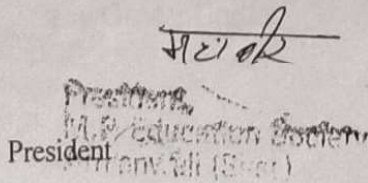 महावीर
President,
M.P. Education Society,
President